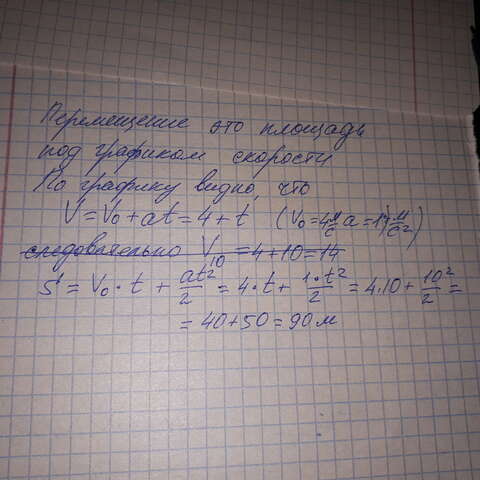 Перемещение это площадь
под графиком скорости
По графику видно, что
V = V₀ + at = 4 + t (V₀ = 4 м/с a = 1 м/с²)
следовательно V₁₀ = 4 + 10 = 14
S = V₀ · t + at²/2 = 4 · t + 1·t²/2 = 4.10 + 10²/2 =
= 40 + 50 = 90 м